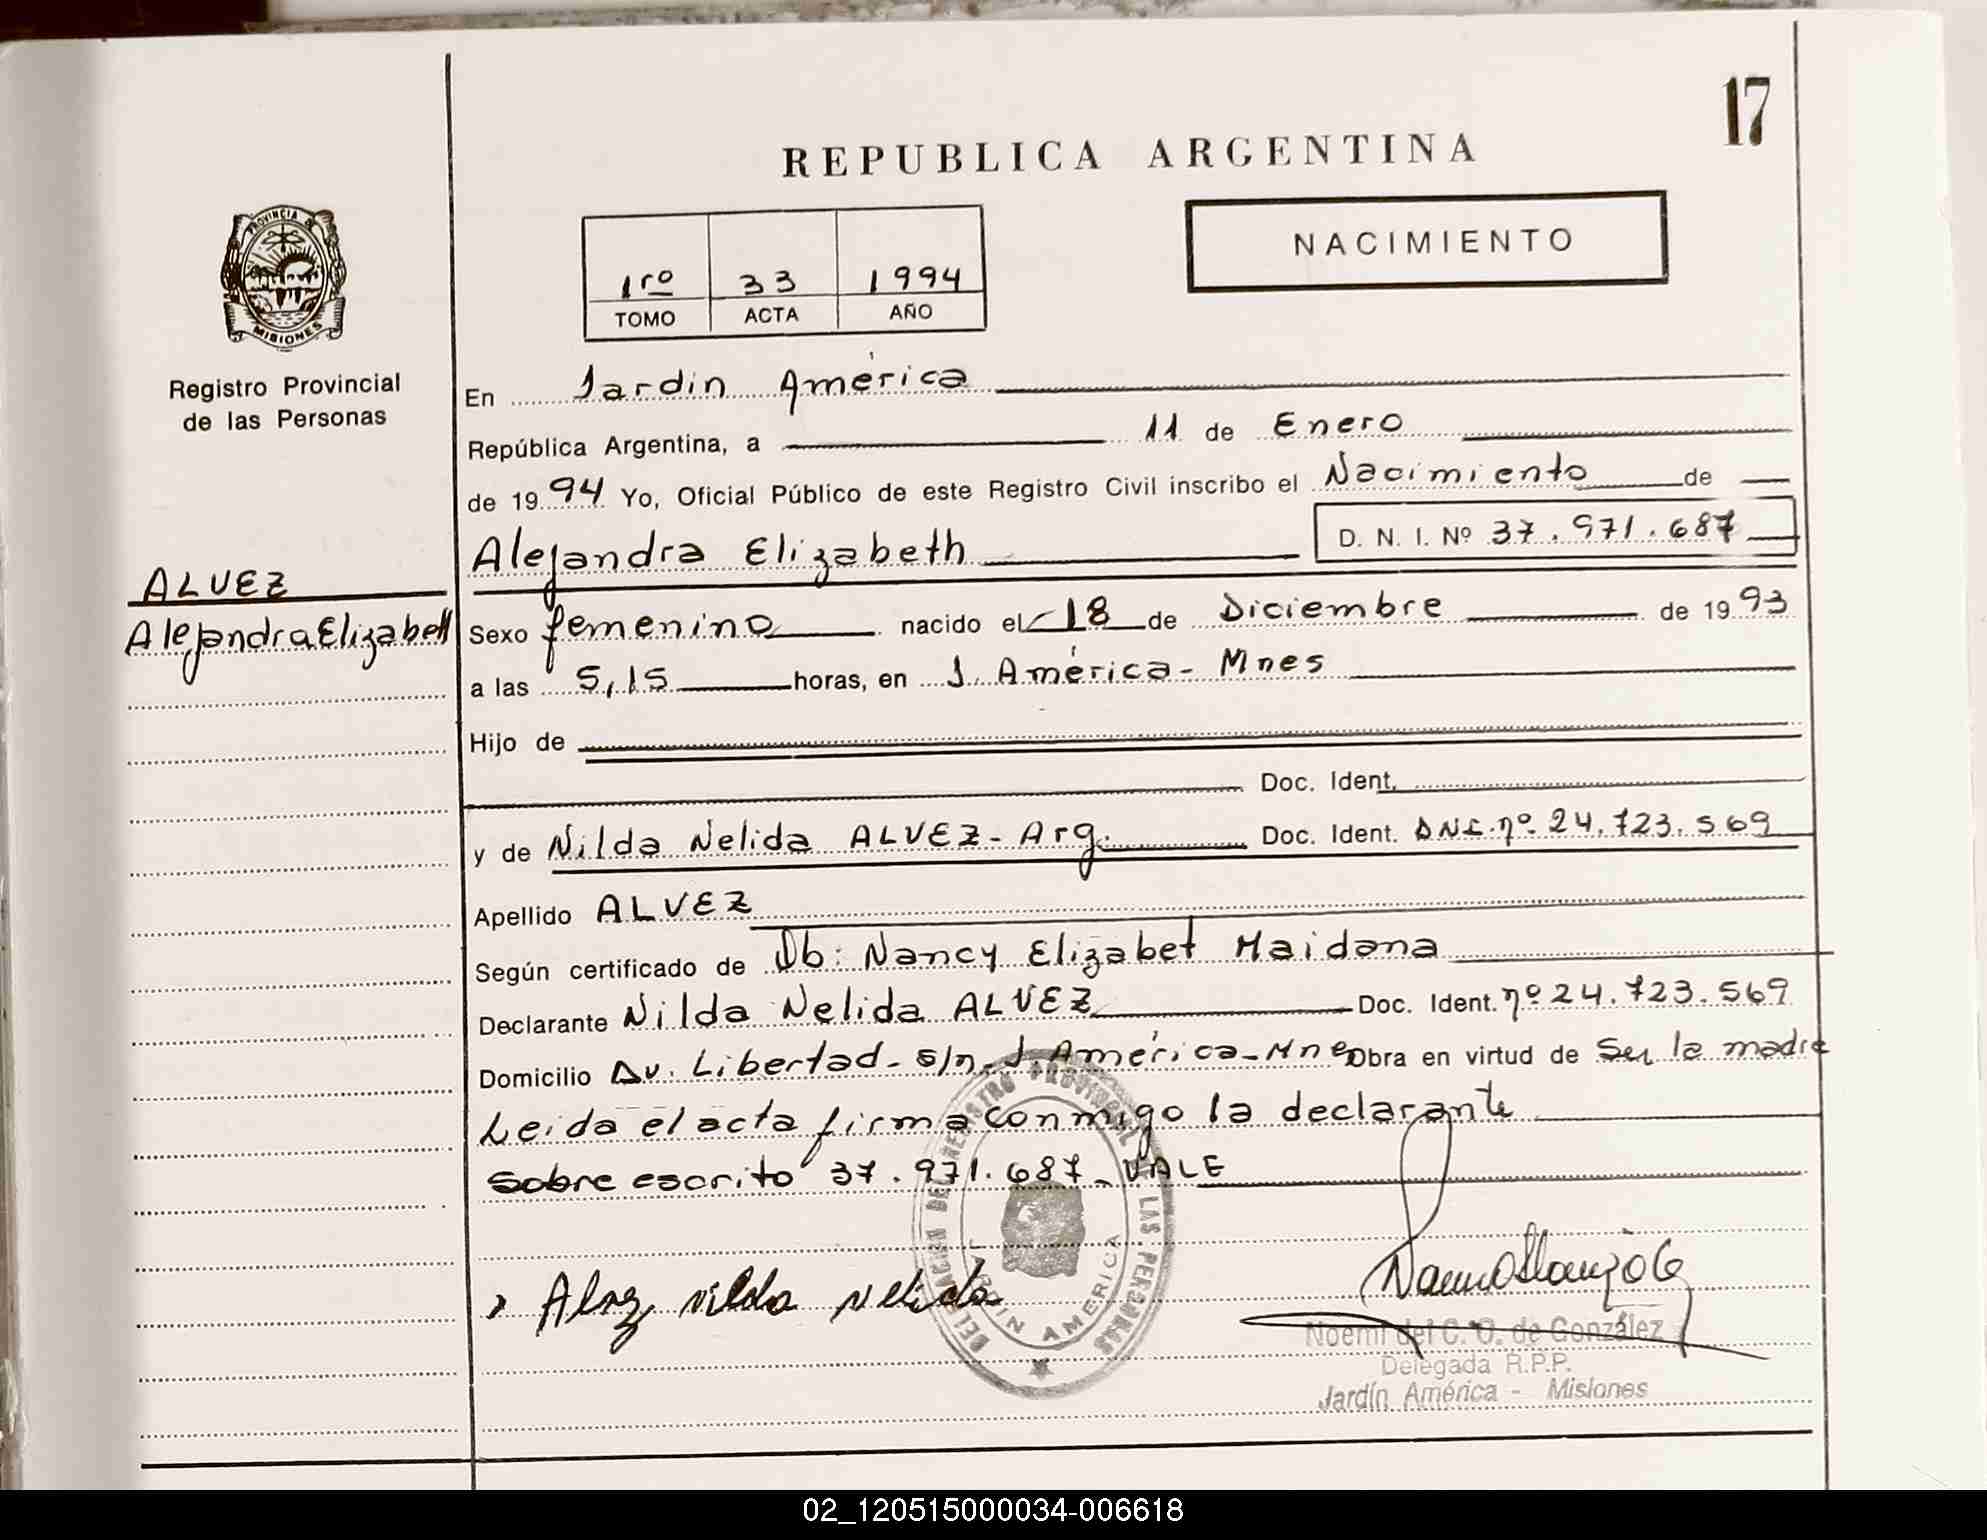 17
REPUBLICA ARGENTINA
NACIMIENTO
1ro 33 1994
TOMO ACTA AÑO
PROVINCIA DE
MISIONES
Registro Provincial
de las Personas
ALVEZ
Alejandra Elizabeth
En Jardin América
República Argentina, a 11 de Enero
de 1994 Yo, Oficial Público de este Registro Civil inscribo el Nacimiento de
Alejandra Elizabeth D. N. I. Nº 37.971.687
Sexo femenino nacido el 18 de Diciembre de 1993
a las 5,15 horas, en J. América - Mnes
Hijo de
Doc. Ident.
y de Nilda Nelida ALVEZ - Arg. Doc. Ident. DNI. nº 24.723.569
Apellido ALVEZ
Según certificado de Ob: Nancy Elizabet Maidana
Declarante Nilda Nelida ALVEZ Doc. Ident. nº 24.723.569
Domicilio Av. Libertad - s/n - J. América - Mnes Obra en virtud de Ser la madre
Leida el acta firma conmigo la declarante
Sobre escrito 37.971.687 - VALE
DELEGACION DEL REGISTRO PROVINCIAL DE LAS PERSONAS
JARDIN AMERICA
Alvez nilda nelida
Noemí del C. O. de González
Delegada R.P.P.
Jardín América - Misiones
02_120515000034-006618